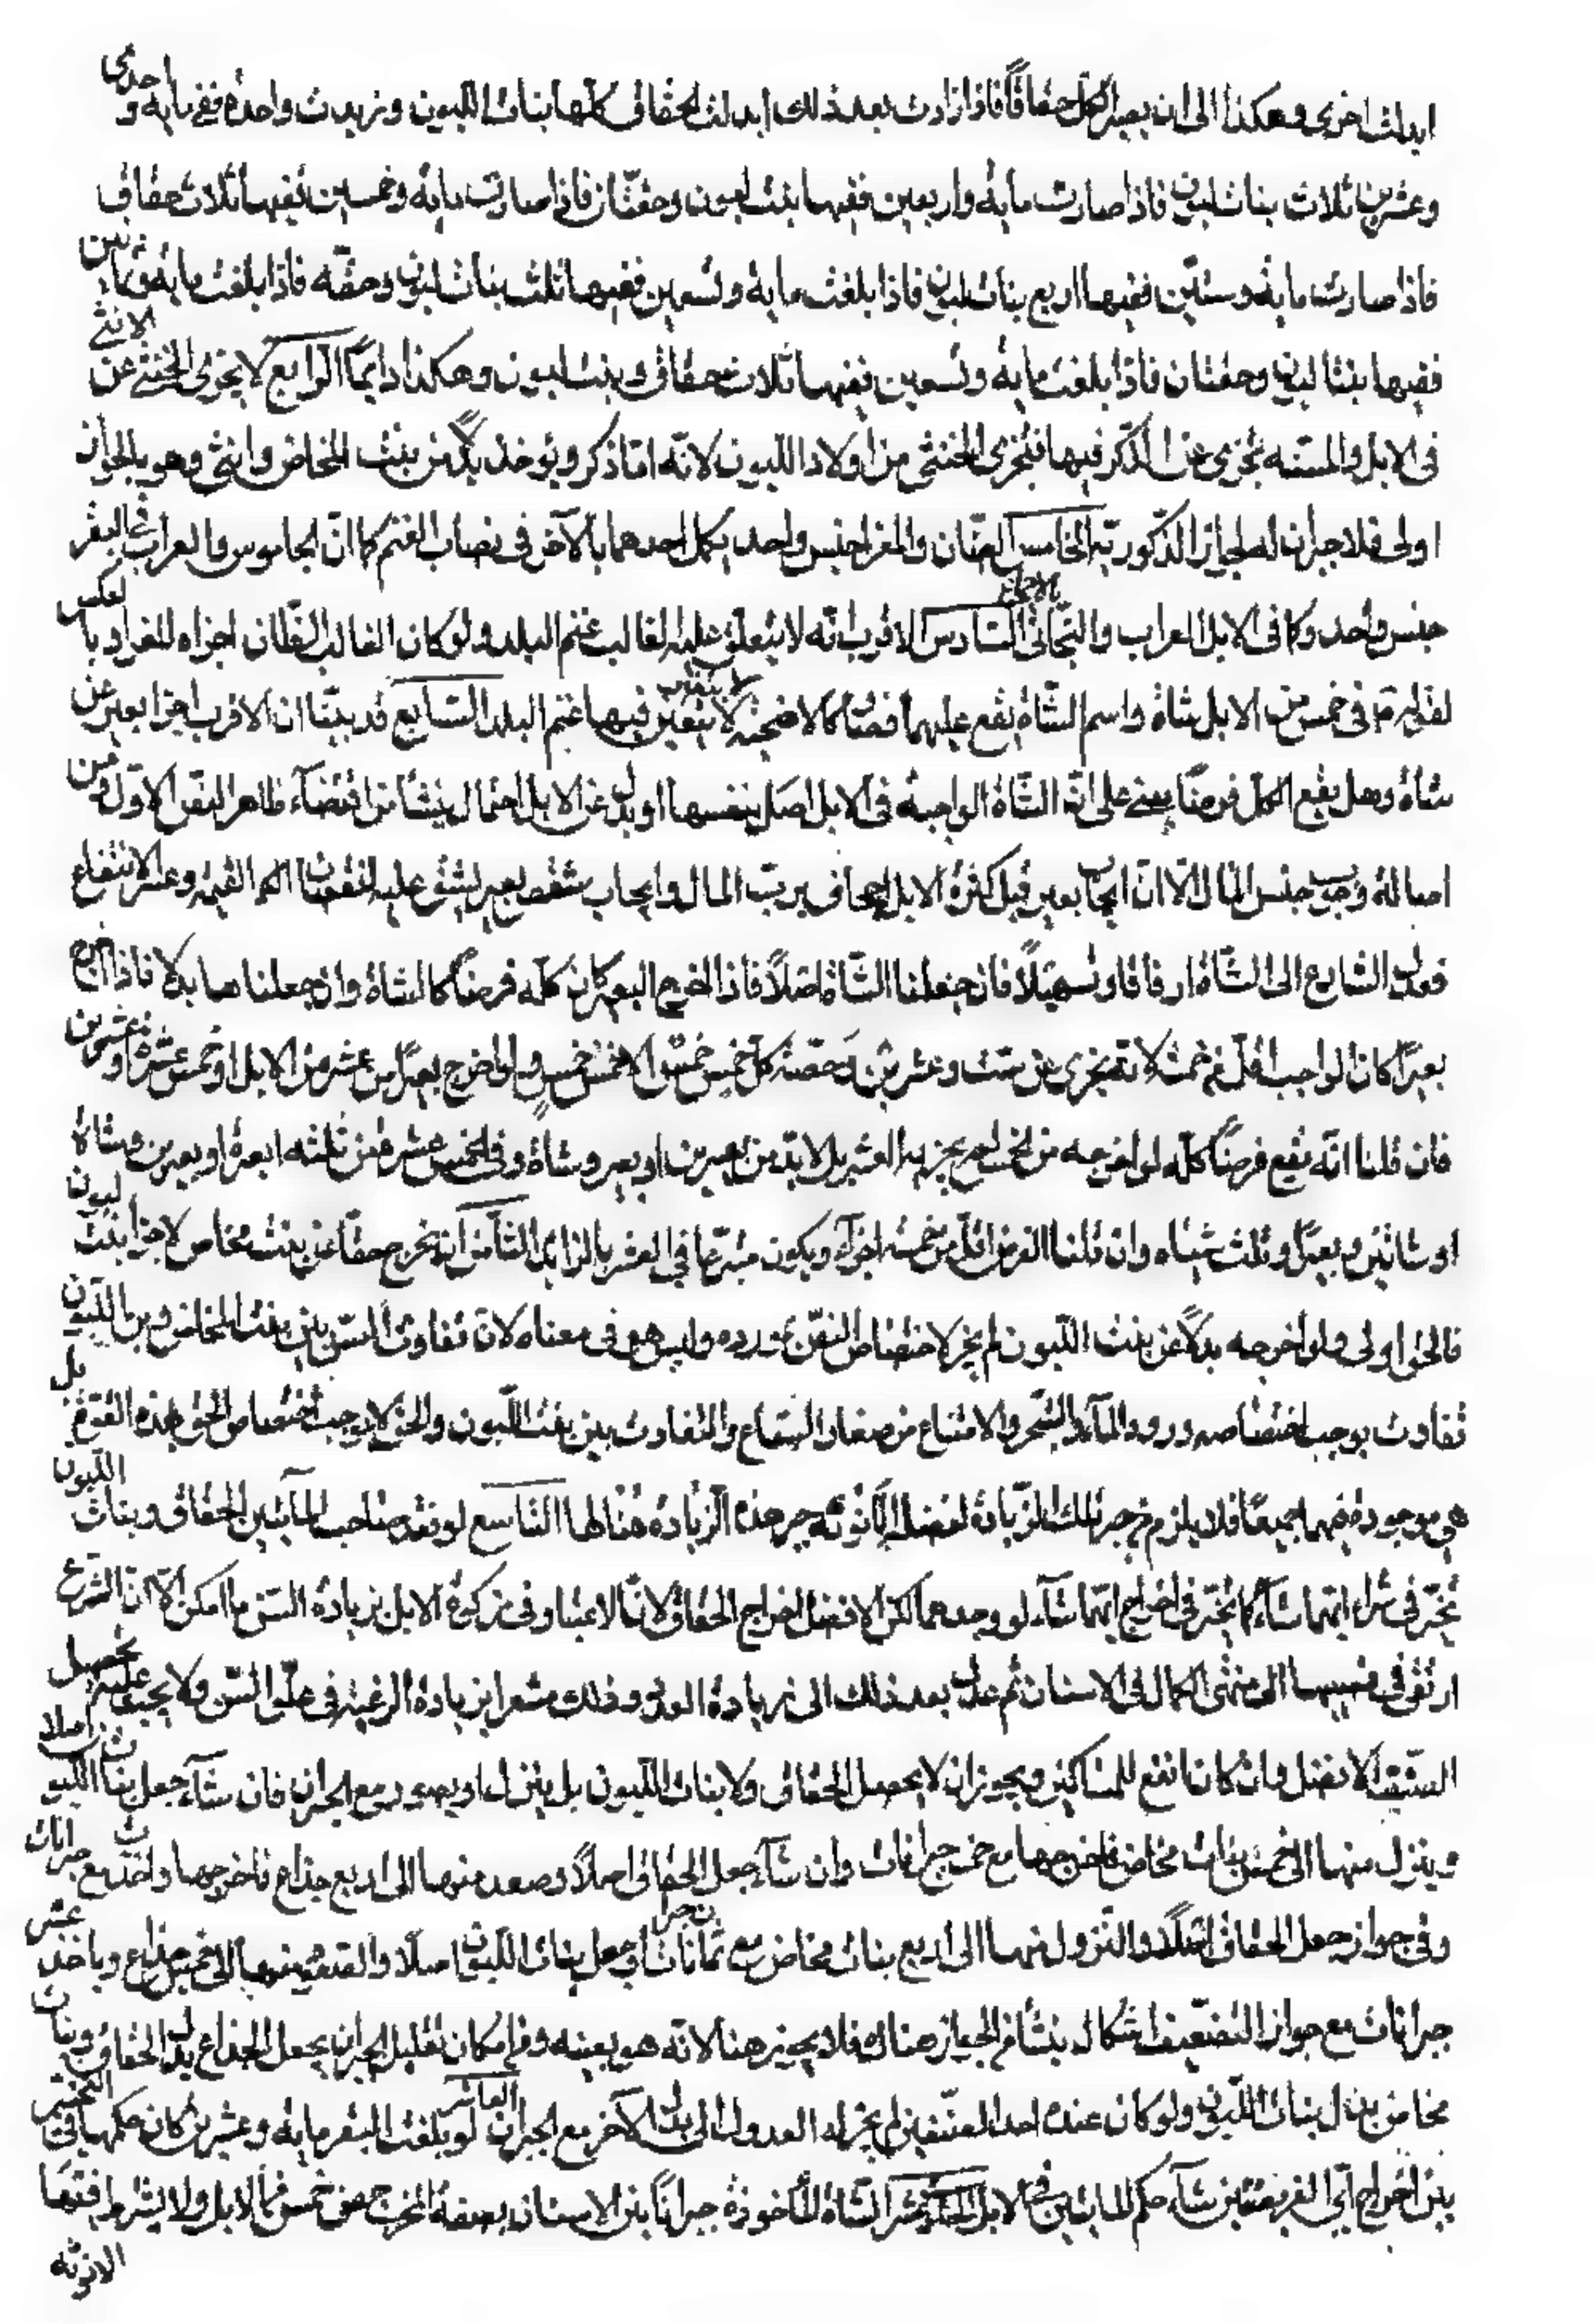 ابدلت اخرى وهكذا الى ان يصير الكل حقاقًا فاذا زادت بعد ذلك ابدلت الحقاق كلها بنات اللبون وزيدت واحدة ففى مايه و احدى
وعشرين ثلاث بنات لبون فاذا صارت مايه واربعين ففيها بنت لبون وحقتان فاذا صارت مايه وخمسين ففيها ثلاث حقاق
فاذا صارت مايه وستين ففيها اربع بنات لبون فاذا بلغت مايه وسبعين ففيها ثلث بنات لبون وحقه فاذا بلغت مايه وثمانين
ففيها بنتا لبون وحقتان فاذا بلغت مايه وتسعين ففيها ثلاث حقاق وبنت لبون وهكذا دايمًا الرابع لا يجزى الخنثى عن الانثى
فى الابل والمسنه تجزى عن الذكر فيها فيجزى الخنثى من اولاد اللبون لانه اما ذكر ويوخذ بدلا من بنت المخاض وانثى وهو بالجواز
اولى فلا جبران له لجواز الذكورية الخامس الضان والمعز جنس واحد يكمل احدهما بالآخر فى نصاب الغنم كما ان الجاموس والعراب فى البقر
جنس واحد وكما فى الابل العراب والبخاتى بالاجماع السادس الاقرب انه لا يتعلق عليه الغالب غنم البلد ولو كان الغالب الضان اجزاه المعز وبالعكس
لقوله فى خمس من الابل شاة واسم الشاة يقع عليهما فصار كالاضحيه لا يتعين فيها غنم البلد السابع قد بينا ان الاقرب اجزا بعير عن
شاة وهل يقع الكل فرضًا يبنى على ان الشاة الواجبة فى الابل اصل بنفسها او بدل عن الابل احتمال ينشأ من اقتضاء ظاهر النص الاول ومن
اصالة وجوب جنس المال الا ان ايجاب بعير قبل كثرة الابل اجحاف برب المال وايجاب شقص بعير يشق عليه لنقصان القيمه وعسر الانتفاع
فعدل الشارع الى الشاة ارفاقا وتسهيلًا فان جعلنا الشاة اصلًا فاذا اخرج البعير كان كله فرضًا كالشاة وان جعلناها بدلا فاذا اخرج
بعيرًا كان الواجب اقل من خمسه لانه يجزى عن ست وعشرين وحصة كل خمس خمس الا خمس خمس ولو اخرج بعيرًا عن عشر من الابل او خمس عشرة او عشرين
فان قلنا انه يقع فرضًا كله لو اخرجه من الخمس لم يجزيه فى العشر بل لابد من بعيرين او بعير وشاة وفى الخمس عشرة من ثلثه ابعرة او بعيرين وشاة
او شاتين وبعير او ثلث شياه وان قلنا الفرض اقل من خمسه اجزأه ويكون متبرعًا فى العشر بالزائد الثامن انه يخرج حقًا عن بنت مخاض لاجزا بنت لبون
فالحق اولى ولو اخرجه بدلًا عن بنت اللبون لم يجز لاختصاص النص بمورده وليس هو فى معناه لان تفاوت السن بين بنت المخاض وابن اللبون
تفاوت يوجب اختصاصه ورود الماء والشجر والامتناع من صغار السباع والتفاوت بين بنت اللبون والحق لا يوجب اختصاص الحق بهذه القوة بل
هى موجودة فيهما جميعًا فلا يلزم من جبر تلك الزيادة لفضل الانوثة جبر هذه الزيادة هنا لها التاسع لو فقد صاحب المأتين الحقاق وبنات اللبون
تخير فى شراء ايهما شاء كما يتخير فى اخراج ايهما شاء لو وجدهما لكن الافضل اخراج الحقاق لان الاعتبار فى زكوة الابل بزيادة السن ما امكن الا ان الشرع
ارتقى فى نصبها الى منتهى الكمال فى الاسنان ثم عدل بعد ذلك الى زيادة العدد وذلك مشعر بزيادة الرغبة فى علو السن ولا يجب عليه تحصيل
السن الافضل وان كان انفع للمساكين ويجوز ان لا يحصل الحقاق ولا بنات اللبون بل ينزل او يصعد مع الجبران فان شاء جعل بنات اللبون اصلا
وينزل منها الى خمس بنات مخاض فاخرجها مع خمس جبرانات وان شاء جعل الحقاق اصلًا وصعد منها الى اربع جذاع فاخرجها واخذ اربع جبرانات
وفى جواز جعل الحقاق اصلا والنزول منها الى اربع بنات مخاض مع ثمان جبرانات او جعل بنات اللبون اصلًا والصعود منها الى خمس جذاع وياخذ عشر
جبرانات مع جواز التضعيف اشكال ينشأ من الجواز هناك فلا يجوز هنا لانه هو بعينه وفى امكان تقليل الجبران بجعل الجذاع بدل الحقاق وبنات
مخاض بدل بنات اللبون ولو كان عنده احد الصنفين لم يجز له العدول الى بدل الآخر مع الجبران العاشر لو بلغت البقر مايه وعشرين كان حكمها فى التخيير
بين اخراج اى الفريضتين شاء حكم المائتين فى الابل الحادى عشر الشاة المأخوذة جبرانًا بين الاسنان بصفة المخرج عن خمس من الابل ولا يشترط فيها
الانوثه